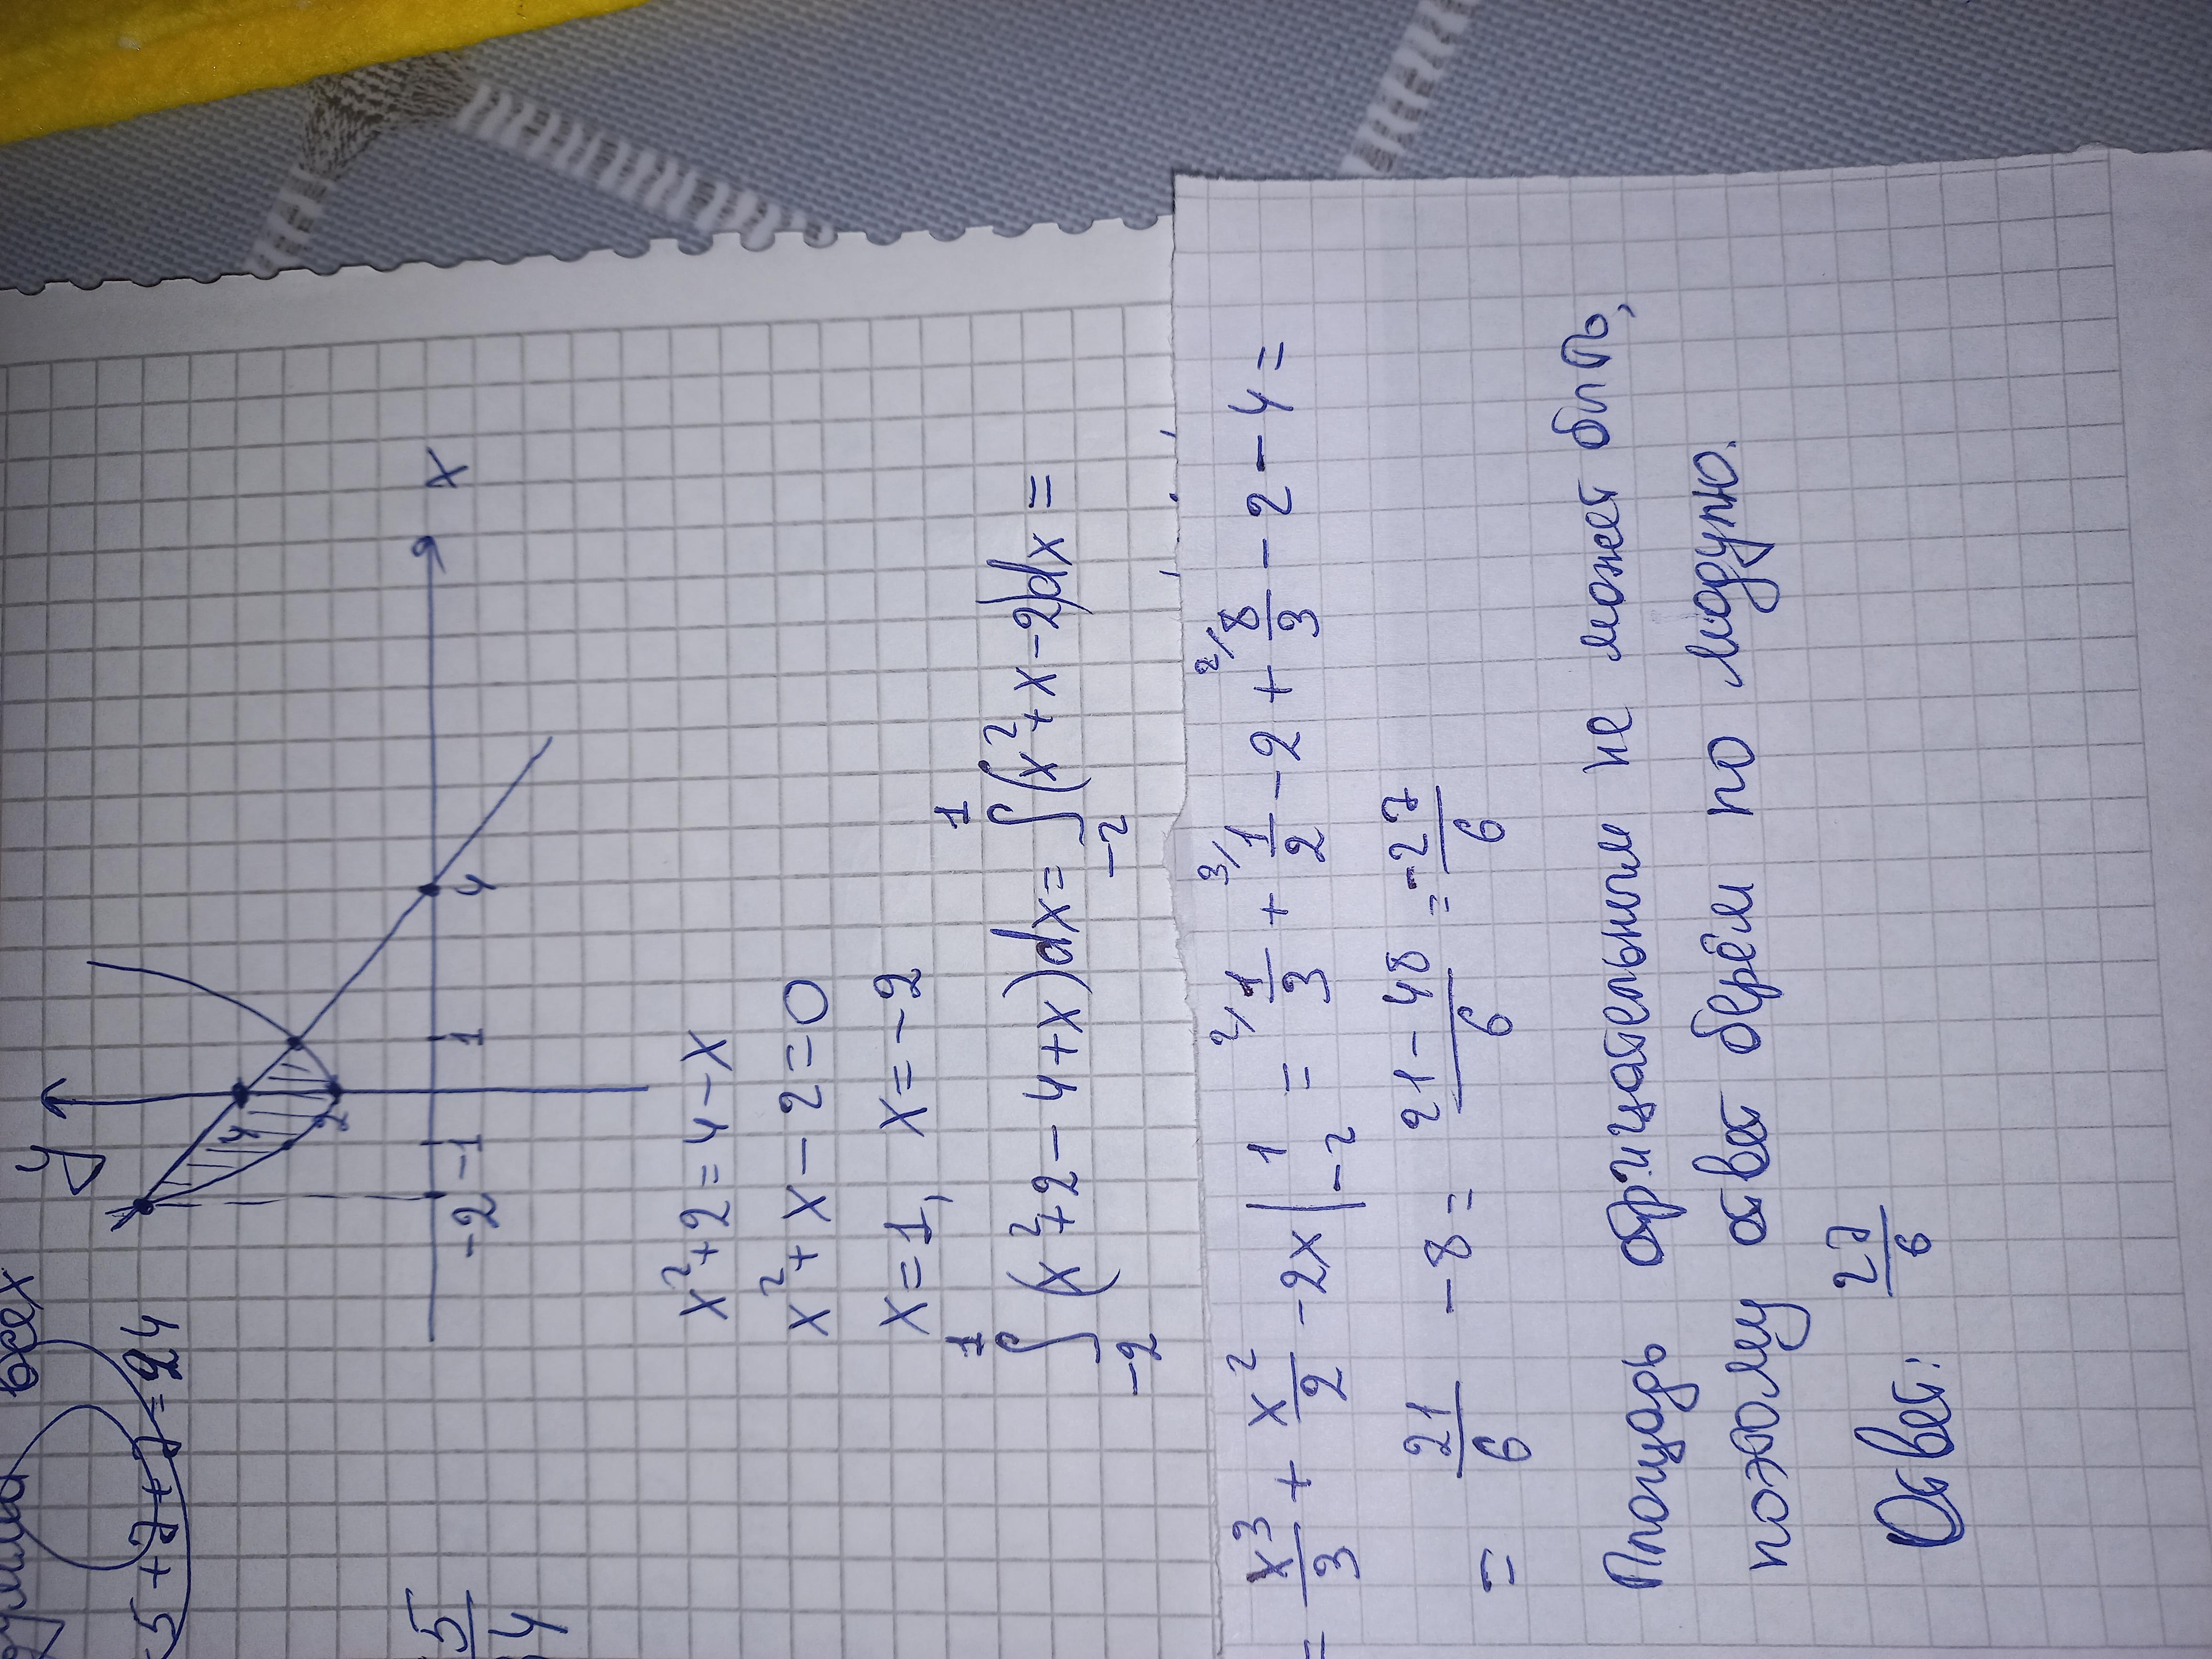 всех
5+2+7=24
5/4
y
x
4
2
-2 -1 1 4
x²+2=4-x
x²+x-2=0
x=1, x=-2
∫₋₂¹(x²+2-4+x)dx=∫₋₂¹(x²+x-2)dx=
=x³/3+x²/2-2x|₋₂¹=²⁄1/3+³⁄1/2-2+²⁄8/3-2-4=
=21/6-8=21-48/6=-27/6
Площадь отрицательным не может быть,
поэтому ответ берём по модулю.
Ответ: 27/6